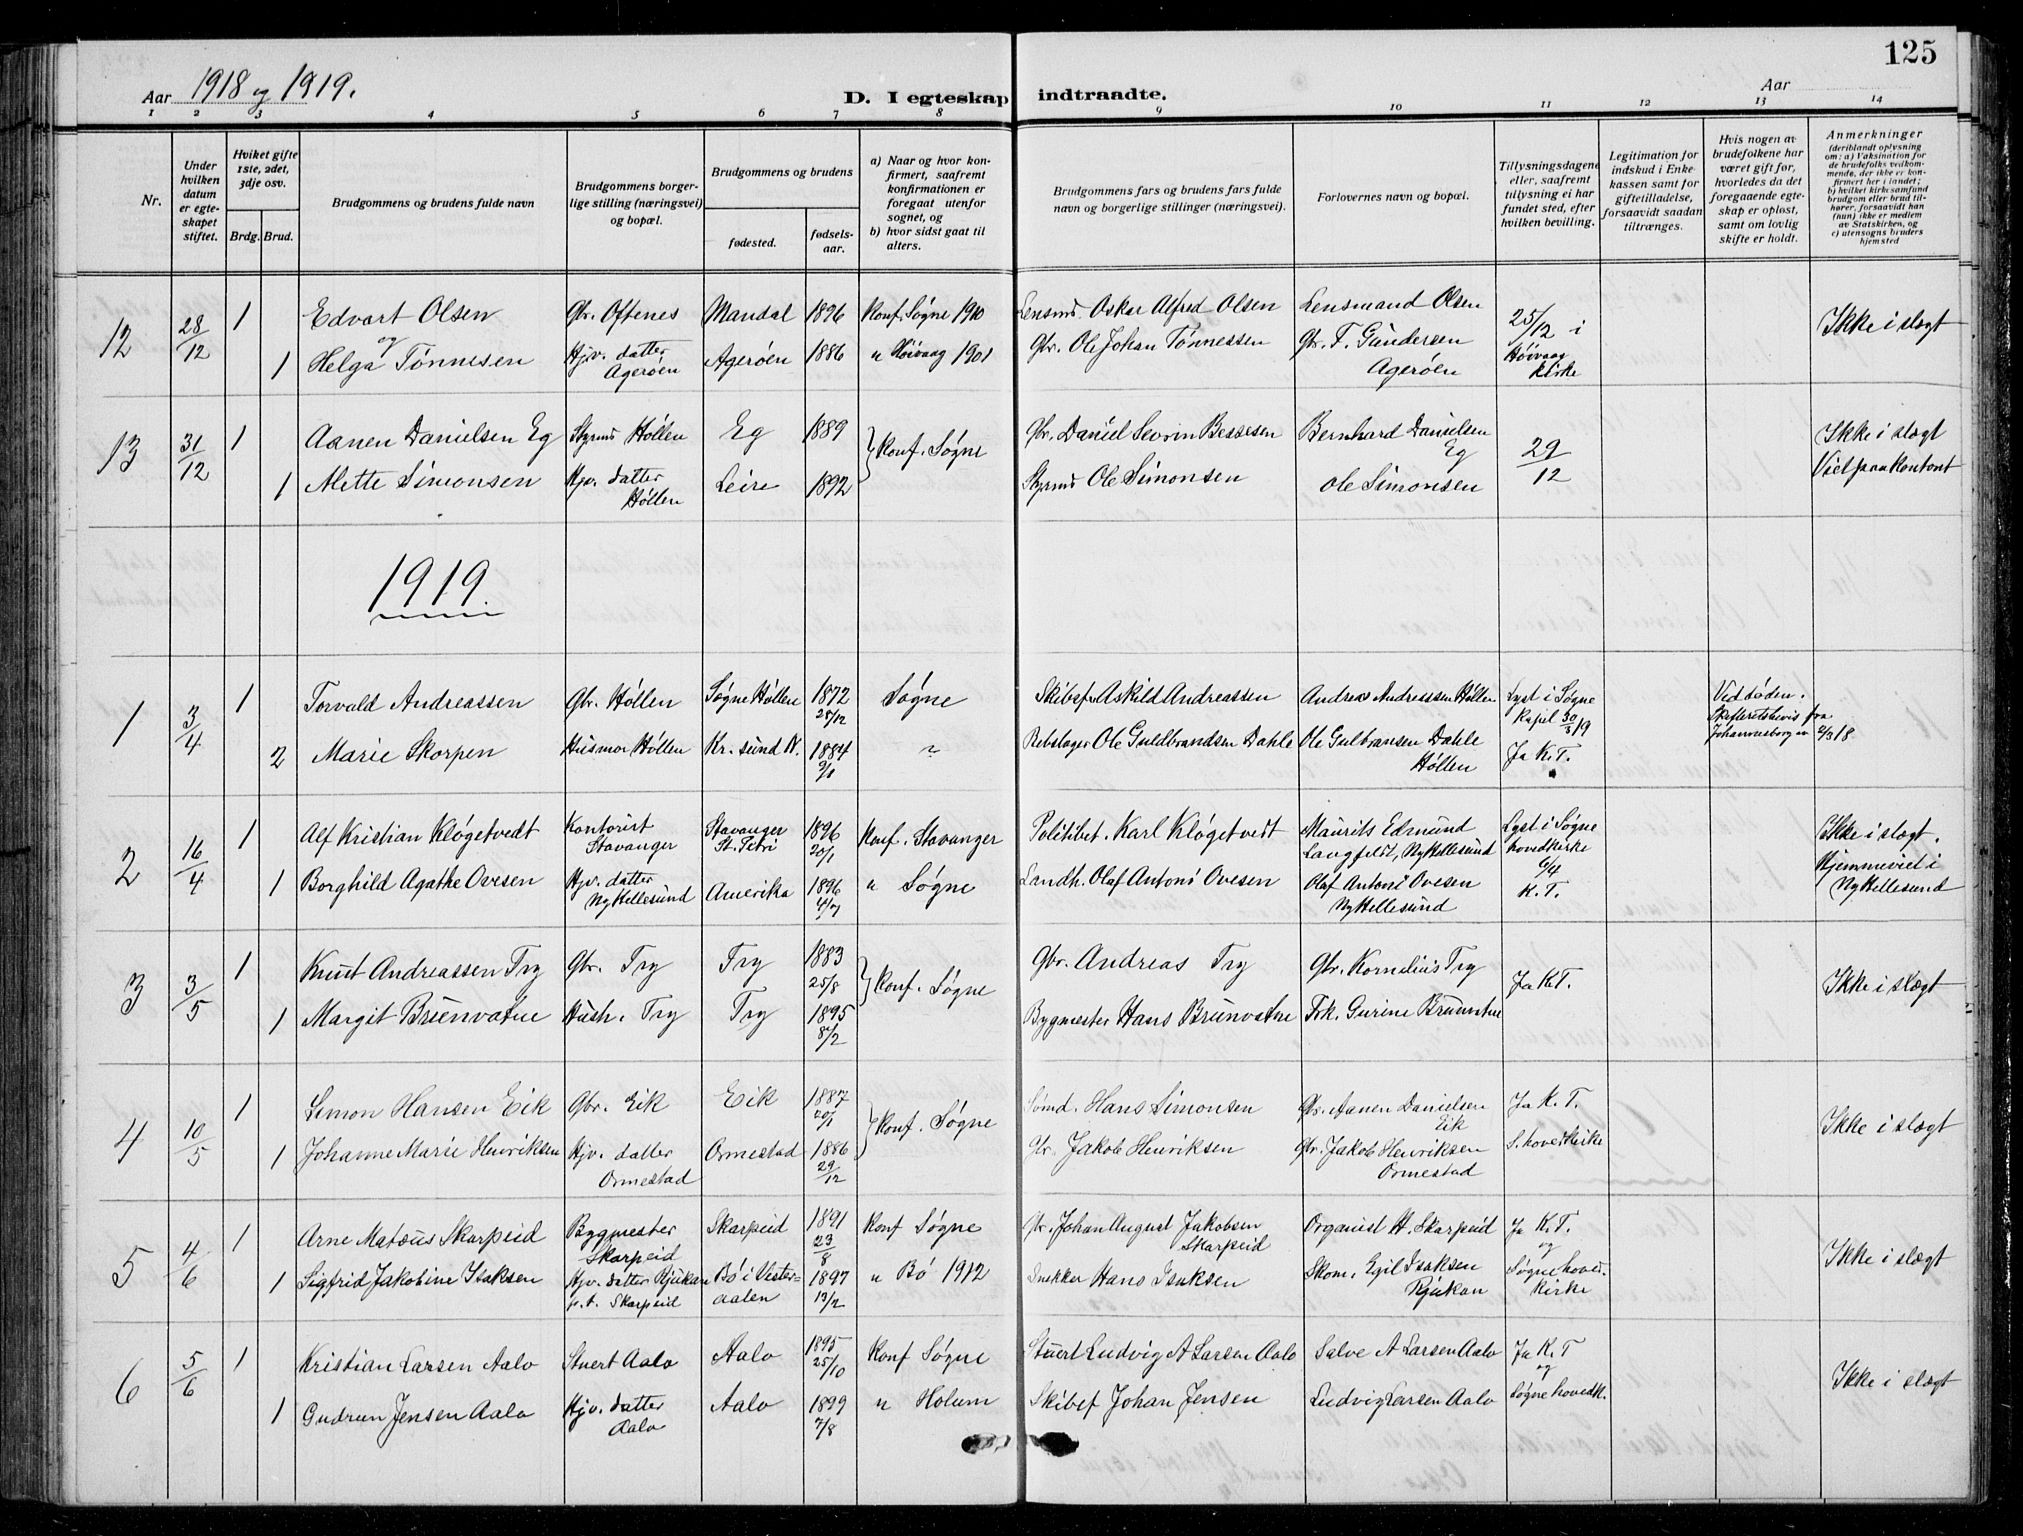 125
Aar 1918 og 1919.
D. I egteskap indtraadte.
Aar
1 2 3 4 5 6 7 8 9 10 11 12 13 14
Nr.
Under hvilken datum er egteskapet stiftet.
Hvilket gifte 1ste, 2det, 3dje osv.
Brdg. Brud.
Brudgommens og brudens fulde navn
Brudgommens borgerlige stilling (næringsvei) og bopæl.
Brudgommens og brudens
fødested.
fødselsaar.
a) Naar og hvor konfirmert, saafremt konfirmationen er foregaat utenfor sognet, og
b) hvor sidst gaat til alters.
Brudgommens fars og brudens fars fulde navn og borgerlige stillinger (næringsvei).
Forlovernes navn og bopæl.
Tillysningsdagene eller, saafremt tillysning ei har fundet sted, efter hvilken bevilling.
Legitimation for indskud i Enkekassen samt for giftetilladelse, forsaavidt saadan tiltrænges.
Hvis nogen av brudefolkene har været gift før, hvorledes da det foregaaende egteskap er opløst, samt om lovlig skifte er holdt.
Anmerkninger (deriblandt oplysning om: a) Vaksination for de brudefolks vedkommende, der ikke er konfirmert her i landet; b) hvilket kirkesamfund brudgom eller brud tilhører, forsaavidt han (hun) ikke er medlem av Statskirken, og c) utensogns bruders hjemsted
12 28/12 1 Edvart Olsen Gbr. Oftenes Mandal 1896 Konf. Søgne 1910 Lensmd. Oskar Alfred Olsen Lensmand Olsen 25/12 i Høivaag Kirke Ikke i slegt
og
1 Helga Tønnesen Hjv. datter Agerøen Agerøen 1886 " Høivaag 1901 Gbr. Ole Johan Tønnessen Gbr. T. Gundersen Agerøen
13 31/12 1 Aanen Danielsen Eg Styrmd Høllen Eg 1889 } Konf. Søgne Gbr. Daniel Sevrin Bessesen Bernhard Danielsen Eg 29/12 Ikke i slegt
1 Mette Simonsen Hjv. datter Høllen Leire 1892 Styrmd Ole Simonsen Ole Simonsen Viet paa kontoret
1919
1 3/4 1 Torvald Andreassen Gbr. Høllen Søgne Høllen 1872 28/12 Søgne Skibsf. Askild Andreassen Andreas Andreassen Høllen Lyst i Søgne Kapel 30/3 19 Ved døden. Skifteretsbevis fra Johannesborg 2/3 18
2 Marie Skorpen Husmor Høllen Kr. sund N. 1884 9/1 " Rebslager Ole Guldbrandsen Dahle Ole Gulbransen Dahle Høllen Ja K. T.
2 16/4 1 Alf Kristian Kløgetvedt Kontorist Stavanger Stavanger St. Petri 1896 20/1 Konf. Stavanger Politibet. Karl Kløgetvedt Maurits Edmund Langfeldt, Ny Hellesund Lyst i Søgne hovedkirke 6/4 Ikke i slegt.
1 Borghild Agathe Ovesen Hjv. datter Ny Hellesund Amerika 1896 4/7 " Søgne Landh. Olaf Antoni Ovesen Olaf Antoni Ovesen Ny Hellesund K. T. Hjemmeviet i Ny Hellesund
3 3/5 1 Knut Andreassen Try Gbr. Try Try 1883 25/8 } Konf. Søgne Gbr. Andreas Try Gbr. Kornelius Try Ja K. T. Ikke i slegt
1 Margit Brunvatne Hush. Try Try 1895 8/2 Bygmester Hans Brunvatne Frk. Gurine Brunvatne
4 10/5 1 Simon Hansen Eik Gbr. Eik Eik 1887 20/1 } Konf. Søgne Sømd. Hans Simonsen Gbr. Aanen Danielsen Eik Ja K. T. Ikke i slegt
1 Johanne Marie Henriksen Hjv. datter Ormestad Ormestad 1886 29/12 Gbr. Jakob Henriksen Gbr. Jakob Henriksen Ormestad S. hovedkirke
5 4/6 1 Arne Matæus Skarpeid Bygmester Skarpeid Skarpeid 1891 23/8 Konf Søgne Gbr. Johan August Jakobsen Skarpeid Organist H. Skarpeid Ja K. T. og Ikke i slegt
1 Sigfrid Jakobine Isaksen Hjv. datter Rjukan p.t. Skarpeid Bø i Vesteraalen 1897 13/2 " Bø 1912 Snekker Hans Isaksen Skom. Egil Isaksen Rjukan Søgne hovedkirke
6 5/6 1 Kristian Larsen Aalo Stuert Aalo Aalo 1895 25/10 Konf Søgne Stuert Ludvig A Larsen Aalo Salve A Larsen Aalo Ja K. T og Ikke i slegt
1 Gudrun Jensen Aalo Hjv. datter Aalo Aalo 1899 7/8 " Holum Skibsf Johan Jensen Ludvig Larsen Aalo Søgne hovedk.